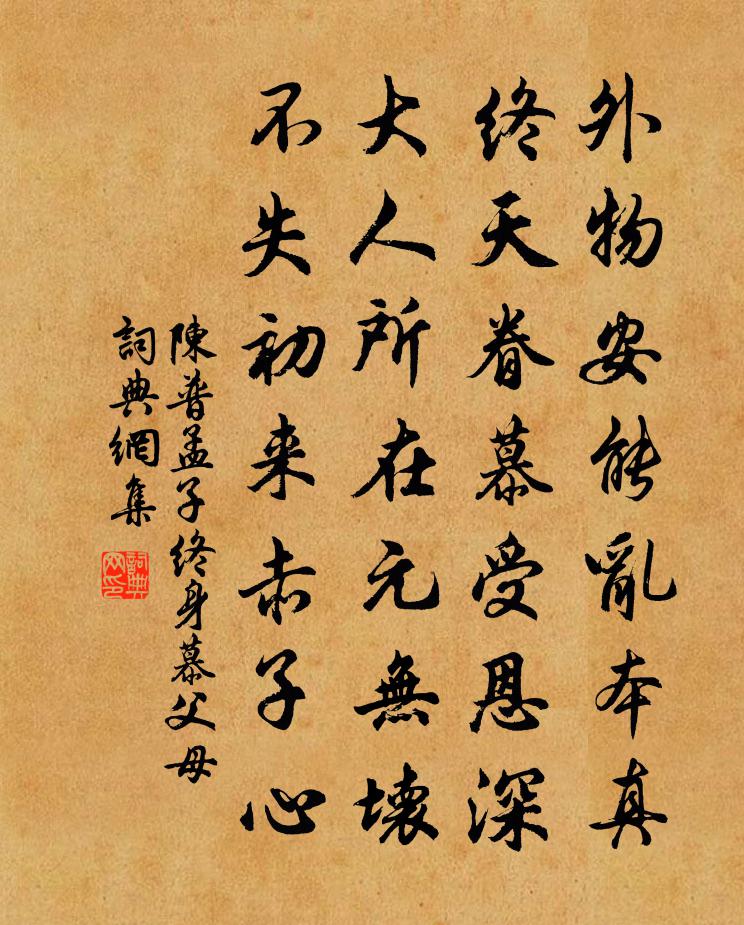 外物安能亂本真
終天眷慕受恩深
大人所在元無壞
不失初来赤子心
陳普孟子終身慕父母
詞典網集
詞典
网印